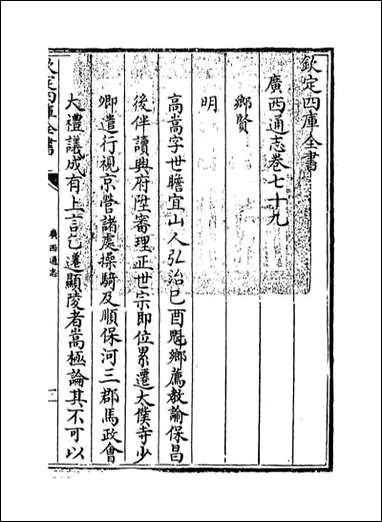 欽定四庫全書
廣西通志卷七十九
鄉賢
明
高嵩字世瞻宜山人弘治己酉魁鄉薦教諭保昌
後伴讀興府陞審理正世宗即位累遷太僕寺少
卿遣行視京營諸處操騎及順保河三郡馬政會
大禮議成有上言乞遷顯陵者嵩極論其不可以
欽定四庫全書
廣西通志
一